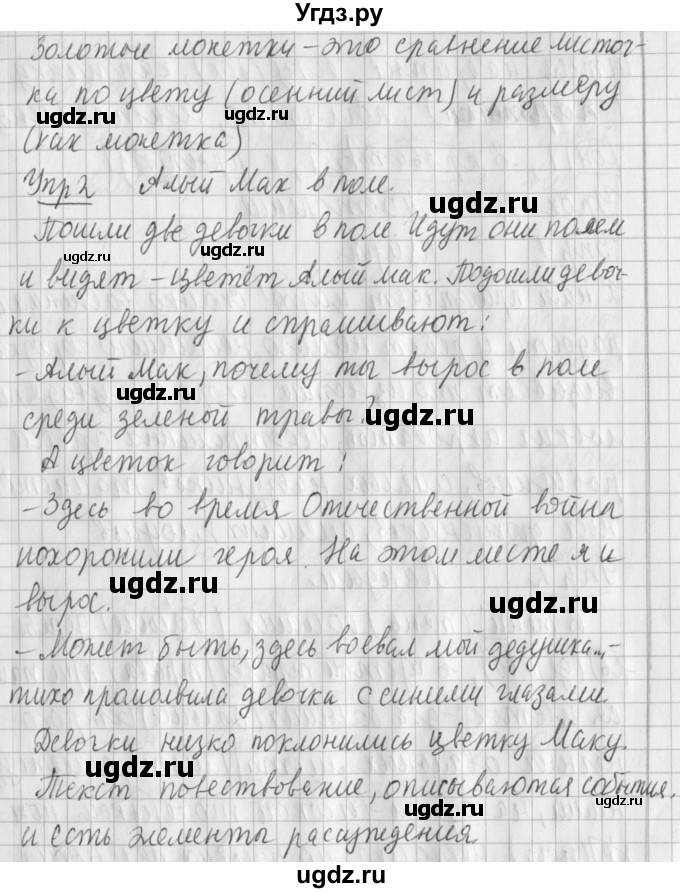 Угдз.ру
Золотые монетки – это сравнение листоч-
ка по цвету (осенний лист) и размеру
ugdz.ru ugdz.ru
(как монетка)
ugdz.ru
Упр 2 Алый Мак в поле.
ugdz.ru
Пошли две девочки в поле. Идут они полем
ugdz.ru ugdz.ru
и видят – цветёт Алый мак. Подошли девоч-
ки к цветку и спрашивают:
– Алый Мак, почему ты вырос в поле
ugdz.ru ugdz.ru
среди зеленой травы?
А цветок говорит:
– Здесь во время Отечественной война
похоронили героя. На этом месте я и
ugdz.ru ugdz.ru
вырос.
– Может быть, здесь воевал мой дедушка.., –
тихо промолвила девочка с синими глазами.
Девочки низко поклонились цветку Маку.
ugdz.ru
Текст повествование, описываются события,
ugdz.ru ugdz.ru
и есть элементы рассуждения.
ugdz.ru